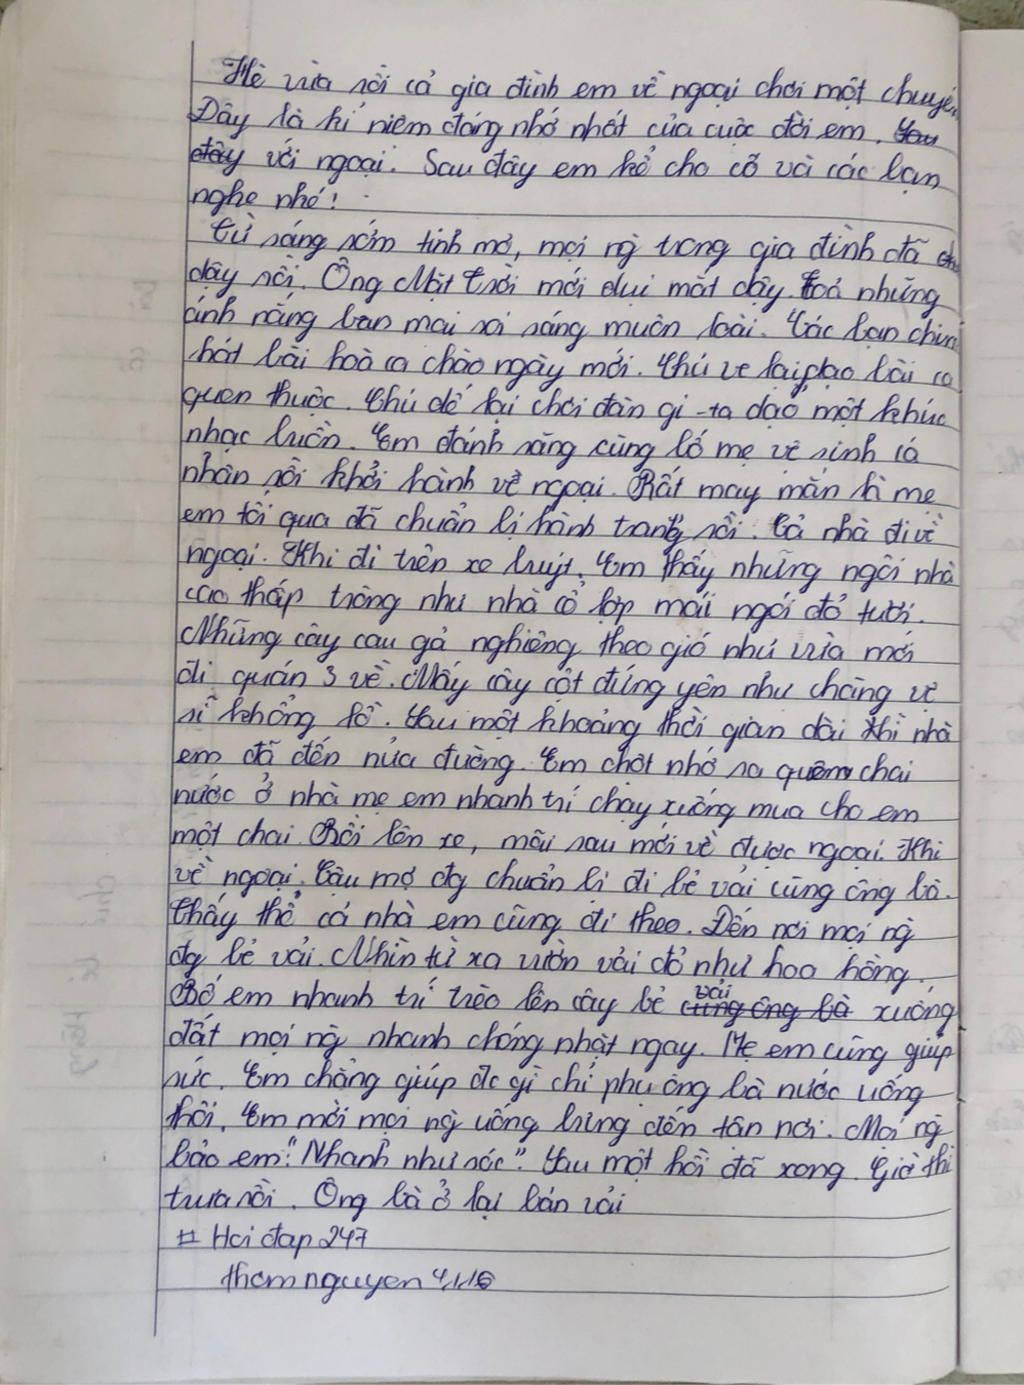 Hè vừa rồi cả gia đình em về ngoại chơi một chuyến
Đây là kỉ niệm đáng nhớ nhất của cuộc đời em. Sau
đây với ngoại. Sau đây em kể cho cô và các bạn
nghe nhé!
Từ sáng sớm tinh mơ, mọi ng̀ trong gia đình đã
dậy rồi. Ông Mặt Trời mới dụi mắt dậy. toả những
ánh nắng ban mai soi sáng muôn loài. Các bạn chim
hót bài hoà ca chào ngày mới. Chú ve lại dạo bài ca
quen thuộc. Chú dế lại chơi đàn gi-ta dạo một khúc
nhạc buồn. Em đánh răng cùng bố mẹ vệ sinh cá
nhân rồi khởi hành về ngoại. Rất may mắn là mẹ
em tối qua đã chuẩn bị hành trang rồi. Cả nhà đi về
ngoại. Khi đi trên xe buýt. Em thấy những ngôi nhà
cao thấp trông như nhà cổ lợp mái ngói đỏ tươi.
Những cây cau gả nghiêng theo gió như vừa mới
đi quán 3 về. Mấy cây cột đứng yên như chàng vệ
sĩ khổng lồ. Sau một khoảng thời gian dài thì nhà
em đã đến nửa đường. Em chợt nhớ ra quên chai
nước ở nhà mẹ em nhanh trí chạy xuống mua cho em
một chai. Rồi lên xe, mãi sau mới về được ngoại. Khi
về ngoại. Cậu mợ đg chuẩn bị đi bẻ vải cùng ông bà.
Thấy thế, cả nhà em cũng đi theo. Đến nơi mọi ng̀
đg bẻ vải. Nhìn từ xa vườn vải đỏ như hoa hồng.
Bố em nhanh trí trèo lên cây bẻ cùng ông bà vải xuống
đất mọi ng̀ nhanh chóng nhặt ngay. Mẹ em cũng giúp
sức. Em chẳng giúp đc gì chỉ phụ ông bà nước uống
thôi. Em mời mọi ng̀ uống bưng đến tận nơi. Mọi ng̀
bảo em: "Nhanh như sóc". Sau một hồi đã xong. Giờ thì
trưa rồi. Ông bà ở lại bán vải
# Hoi đap 247
thomnguyen